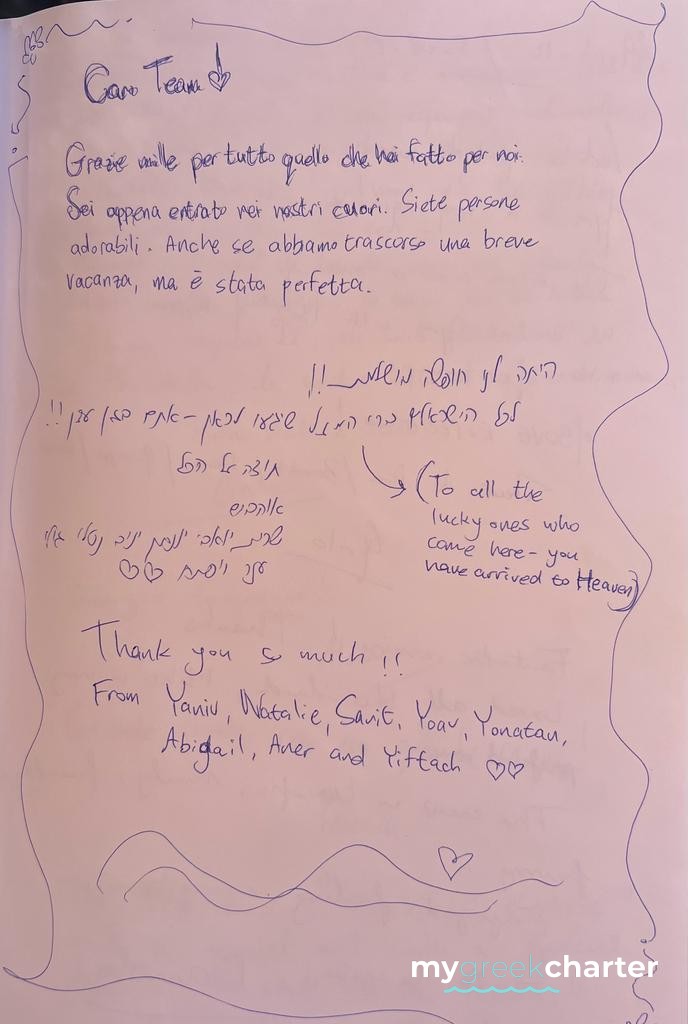 Caro Team
Grazie mille per tutto quello che hai fatto per noi.
Sei appena entrato nei nostri cuori. Siete persone
adorabili. Anche se abbiamo trascorso una breve
vacanza, ma è stata perfetta.
היתה לנו חופשה מושלמת!!
לכל הישראלים ברי המזל שיגעו לכאן - אתם בגן עדן!!
תודה על הכל
אוהבים
שרית יואב יונתן יניב נטלי
ענר ויפתח
(To all the
lucky ones who
come here - you
have arrived to Heaven)
Thank you so much!!
From Yaniv, Natalie, Sarit, Yoav, Yonatan,
Abigail, Aner and Yiftach
mygreekcharter